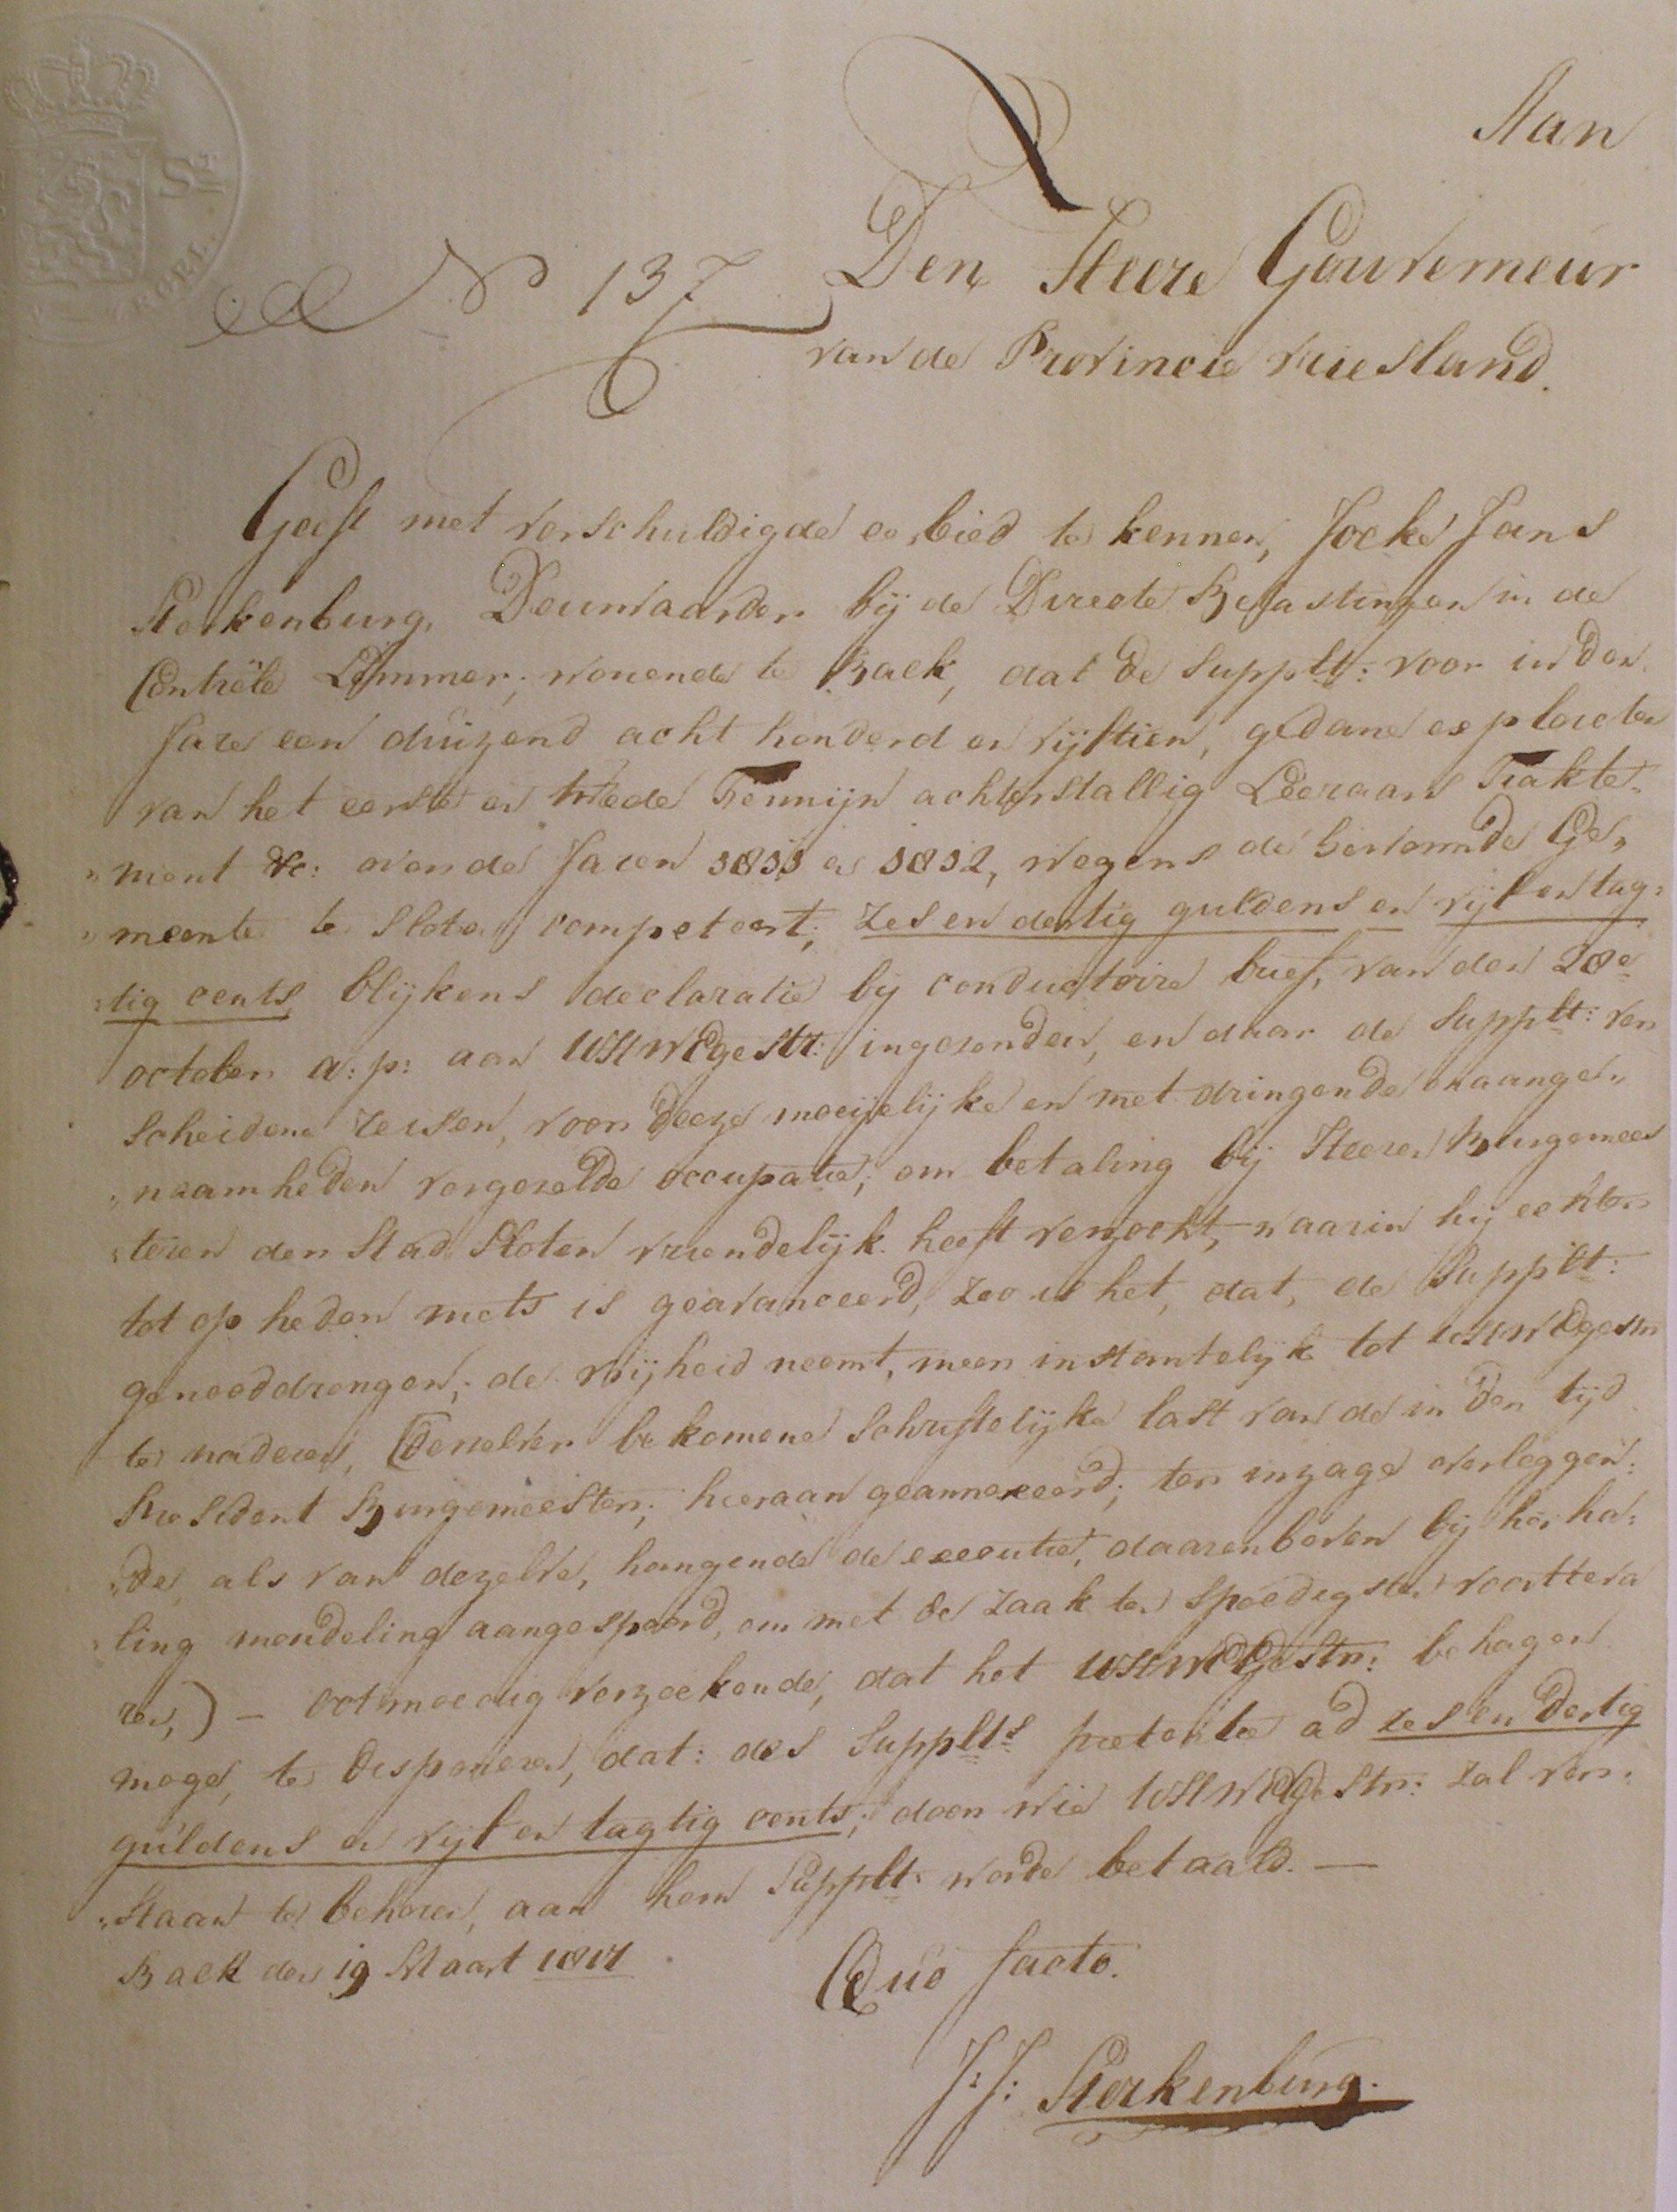 St
REGEL.
Aan
No 137
Den Heere Gouverneur
van de Provincie Vriesland.
Geeft met verschuldigde eerbied te kennen, Jocke Jans
Sterkenburg, Deurwaarder bij de Directe Belastingen in de
Contrôle Lemmer; wonende te Balk, dat de Supplt: voor in den
Jare een duizend acht honderd en vijftien, gedane exploicten
van het eerste en twede Termijn achterstallig Leeraars Trakte„
„ment &c: over de Jaren 1811 en 1812, wegens de hervormde Ge„
„meente te Sloten competeert; zes en dertig guldens en vijf en tag:
:tig cents, blijkens declaratie bij conductoire brief, van den 28e
october a:p: aan UHWEdgestr: ingezonden, en daar de Supplt: ver
scheidene reisen, voor deeze moeijelijke en met dringende onaange„
„naamheden vergezelde occupatie; om betaling bij Heeren Burgemees
:teren der Stad Sloten vriendelijk heeft verzocht, waarin hij echter
tot op heden niets is geavanceerd, zoo is het, dat, de Supplt:
genooddrongen; de vrijheid neemt, meer instantelijk tot UHWEdgestr
te naderen, (denzelver bekomene Schriftelijke last van de in der tijd
President Burgemeester; hieraan geannexeerd; ter inzage overleggen:
„de, als van dezelve, hangende de executie, daarenboven bij herha:
ling mondeling aangespoord, om met de zaak ten spoedigsten voortteva
ren,) — ootmoedig verzoekende, dat het UHWEdGestr: behagen
moge, te disponeren, dat: des Supplts pretentie ad zes en dertig
guldens en vijf en tagtig cents; door wie UHWEdGestr: zal ver:
„staan te behoren, aan hem Supplt: worde betaald. —
Balk den 19 Maart 1817
Quo facto.
J: J: Sterkenburg.